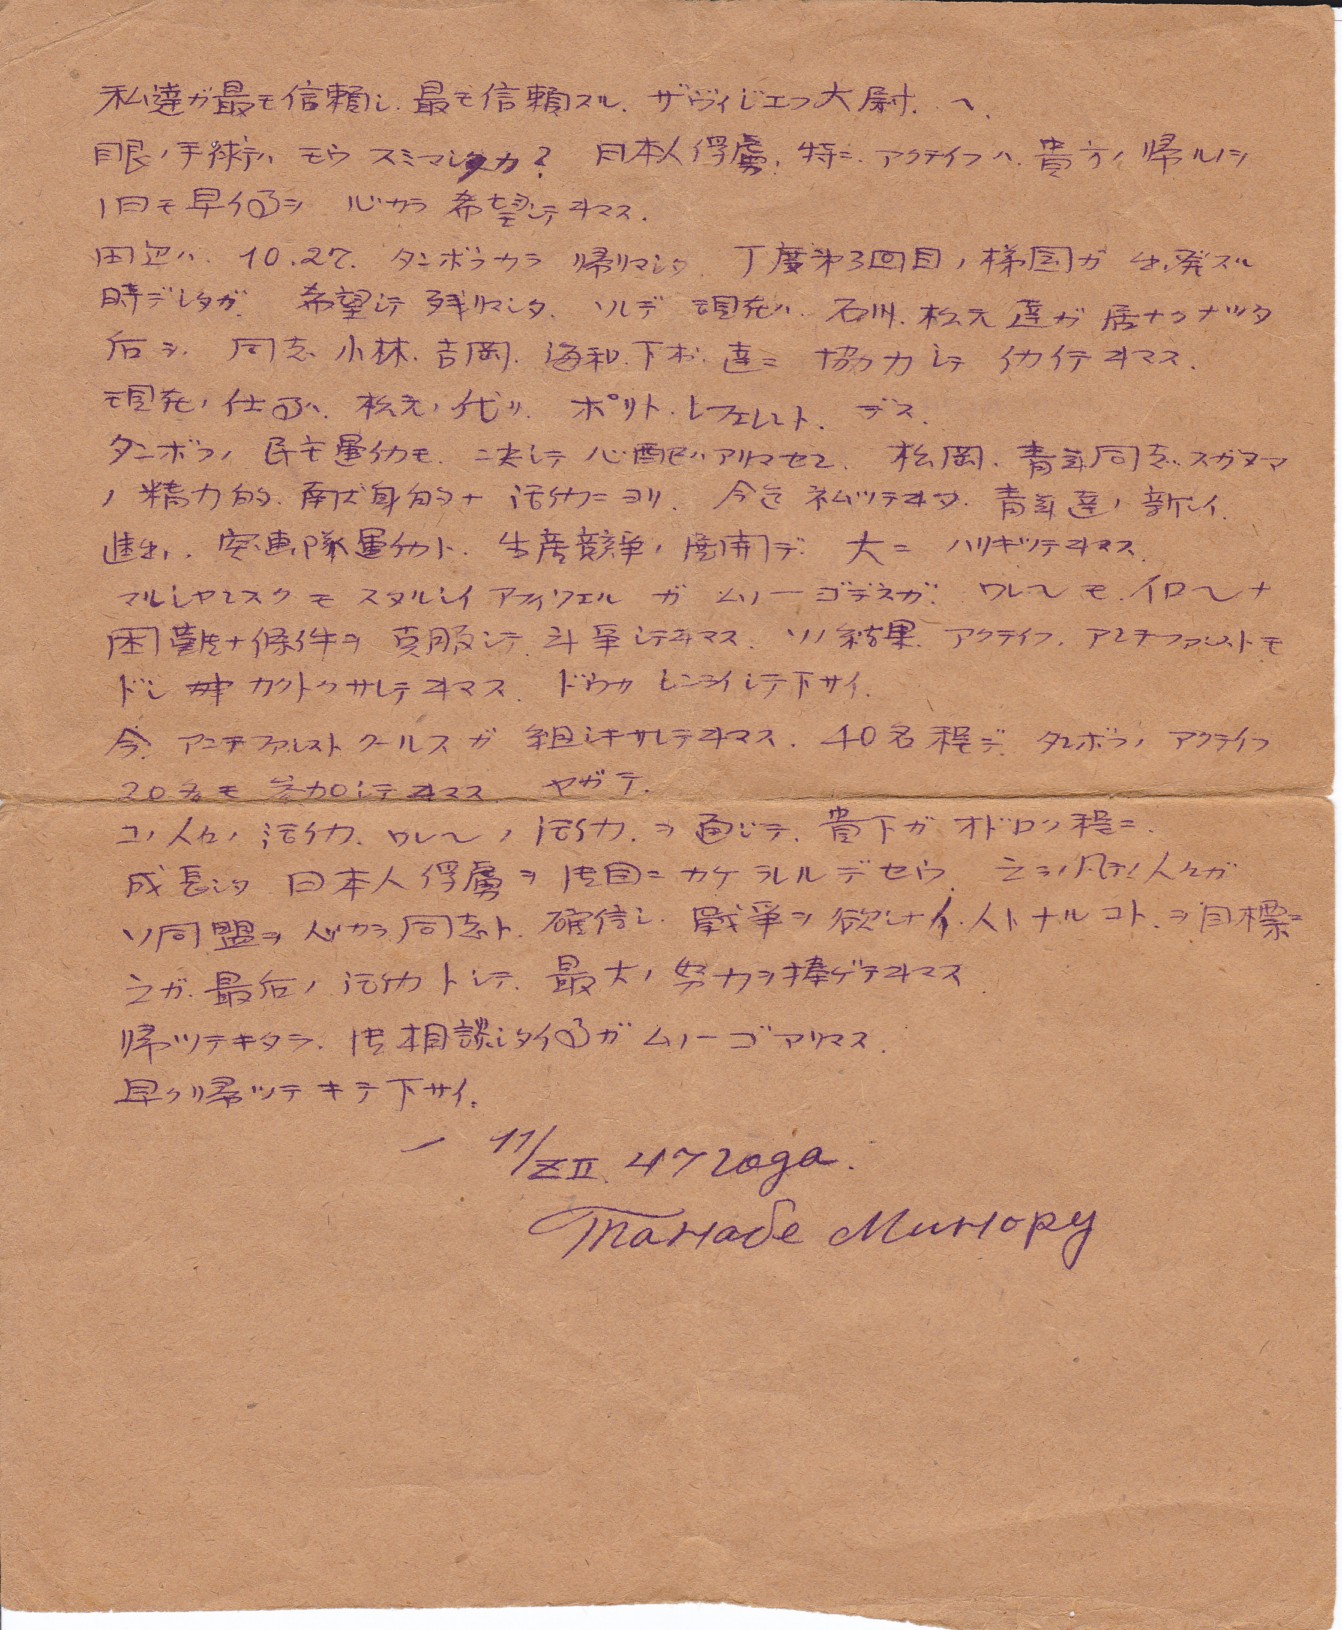 私達ガ最モ信頼シ.最モ信頼スル.ザヴィジエフ大尉.ヘ.
眼ノ手術ハ モウ スミマシタカ? 日本人俘虜,特ニ.アクテイフハ.貴方ノ帰ルノヲ
1日モ早イ事ヲ 心カラ 希望シテヰマス.
田辺ハ.10.27.タンボフカラ 帰リマシタ.丁度第3回目ノ梯団ガ 出発スル
時デシタガ 希望シテ残リマシタ.ソシテ 現在ハ.石川.松元達ガ居ナクナツタ
后ヲ.同志 小林.吉岡.海和.下村.達ニ 協力シテ 仂イテヰマス.
現在ノ仕事ハ.松元ノ代リ.ポリト.レフェレント.デス.
タンボフノ民主運仂モ.決シテ心配ハアリマセン.松岡.青年同志スガヌマ
ノ精力的.献身的ナ 活仂ニヨリ.今迄ネムツテヰタ.青年達ノ新シイ
進出.突 隊運仂ト.生産競争ノ展開デ 大ニ ハリキツテヰマス.
マルシヤンスク モ スタルシイ アフィツェル ガ ムノーゴデスガ.ワレ〱モ.イロ〱ナ
困難ナ條件ヲ 克服シテ.斗争シテヰマス.ソノ結果.アクテイフ.アンチファシストモ
ドシ カクトクサレテヰマス.ドウカ シンライシテ下サイ.
今.アンチファシストクールスガ 組シキサレテヰマス.40名程デ.タンボフノ アクテイフ
20名モ 参加シテヰマス.ヤガテ.
コノ人々ノ活仂、ワレ〱ノ活仂.ヲ通ジテ.貴下ガオドロク程ニ.
成長シタ 日本人俘虜ヲ 目ニカケラレルデセウ. 人々ガ
ソ同盟ヲ 心カラ同志ト.確信シ.戦争ヲ欲シナイ.人トナルコト.ヲ目標ニ
之ガ.最后ノ活仂トシテ.最大ノ努力ヲ捧ゲテヰマス.
帰ツテキタラ. 相談シタイ事ガムノーゴアリマス.
早ク帰ツテキテ下サイ.
— 11/XII 47 года.
Танабе Минору